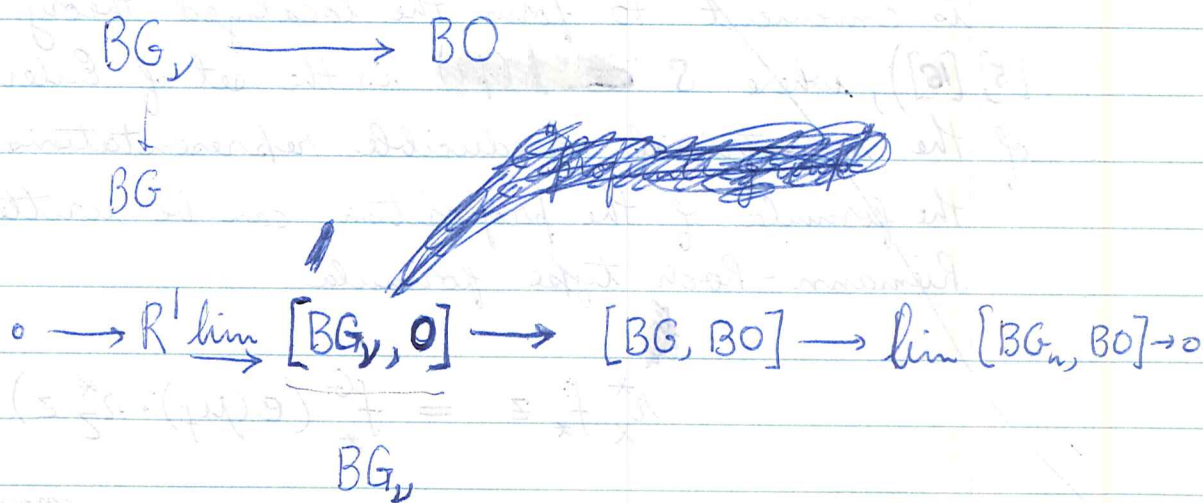 BG_ν ⟶ BO
↓
BG
0 ⟶ R¹ lim [BG_ν, O] ⟶ [BG, BO] ⟶ lim [BG_n, BO] → 0
BG_ν